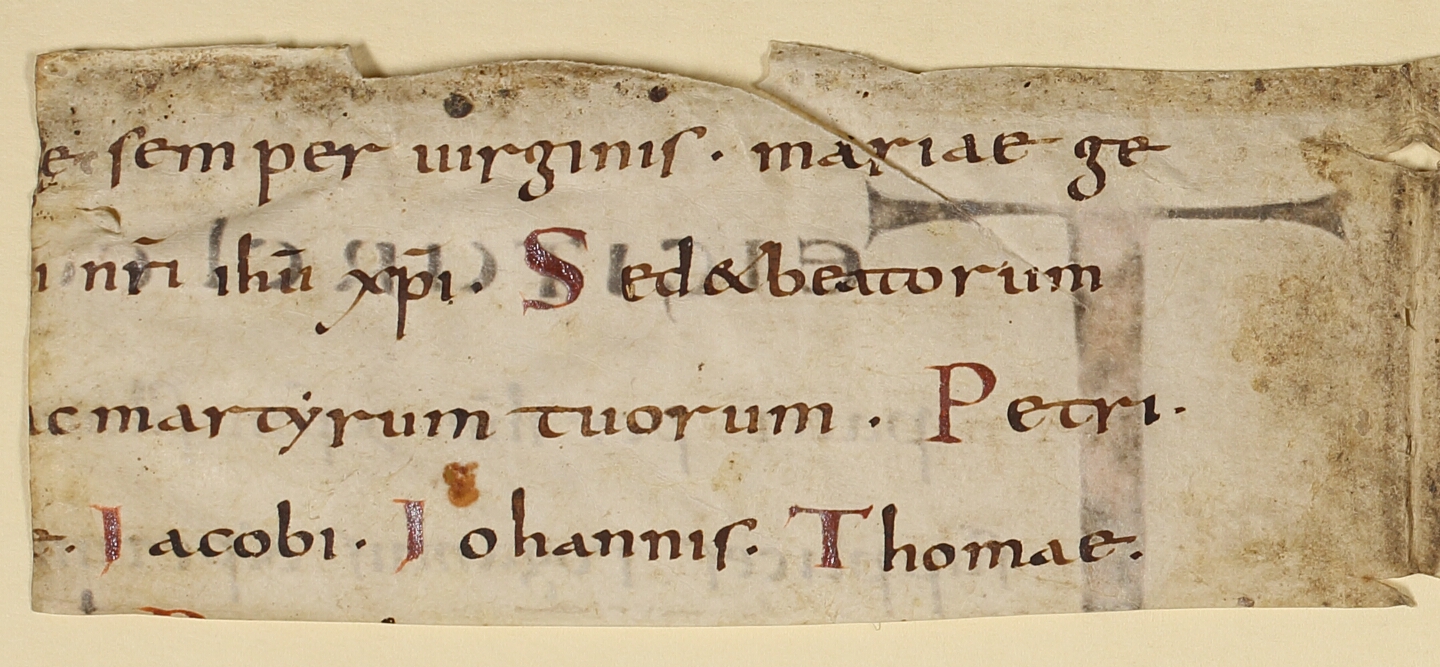 e semper uirginis · mariae ge
i nr̄i ihū xp̄i · Sed & beatorum
ac martyrum tuorum · Petri ·
e · Iacobi · Iohannis · Thomae ·